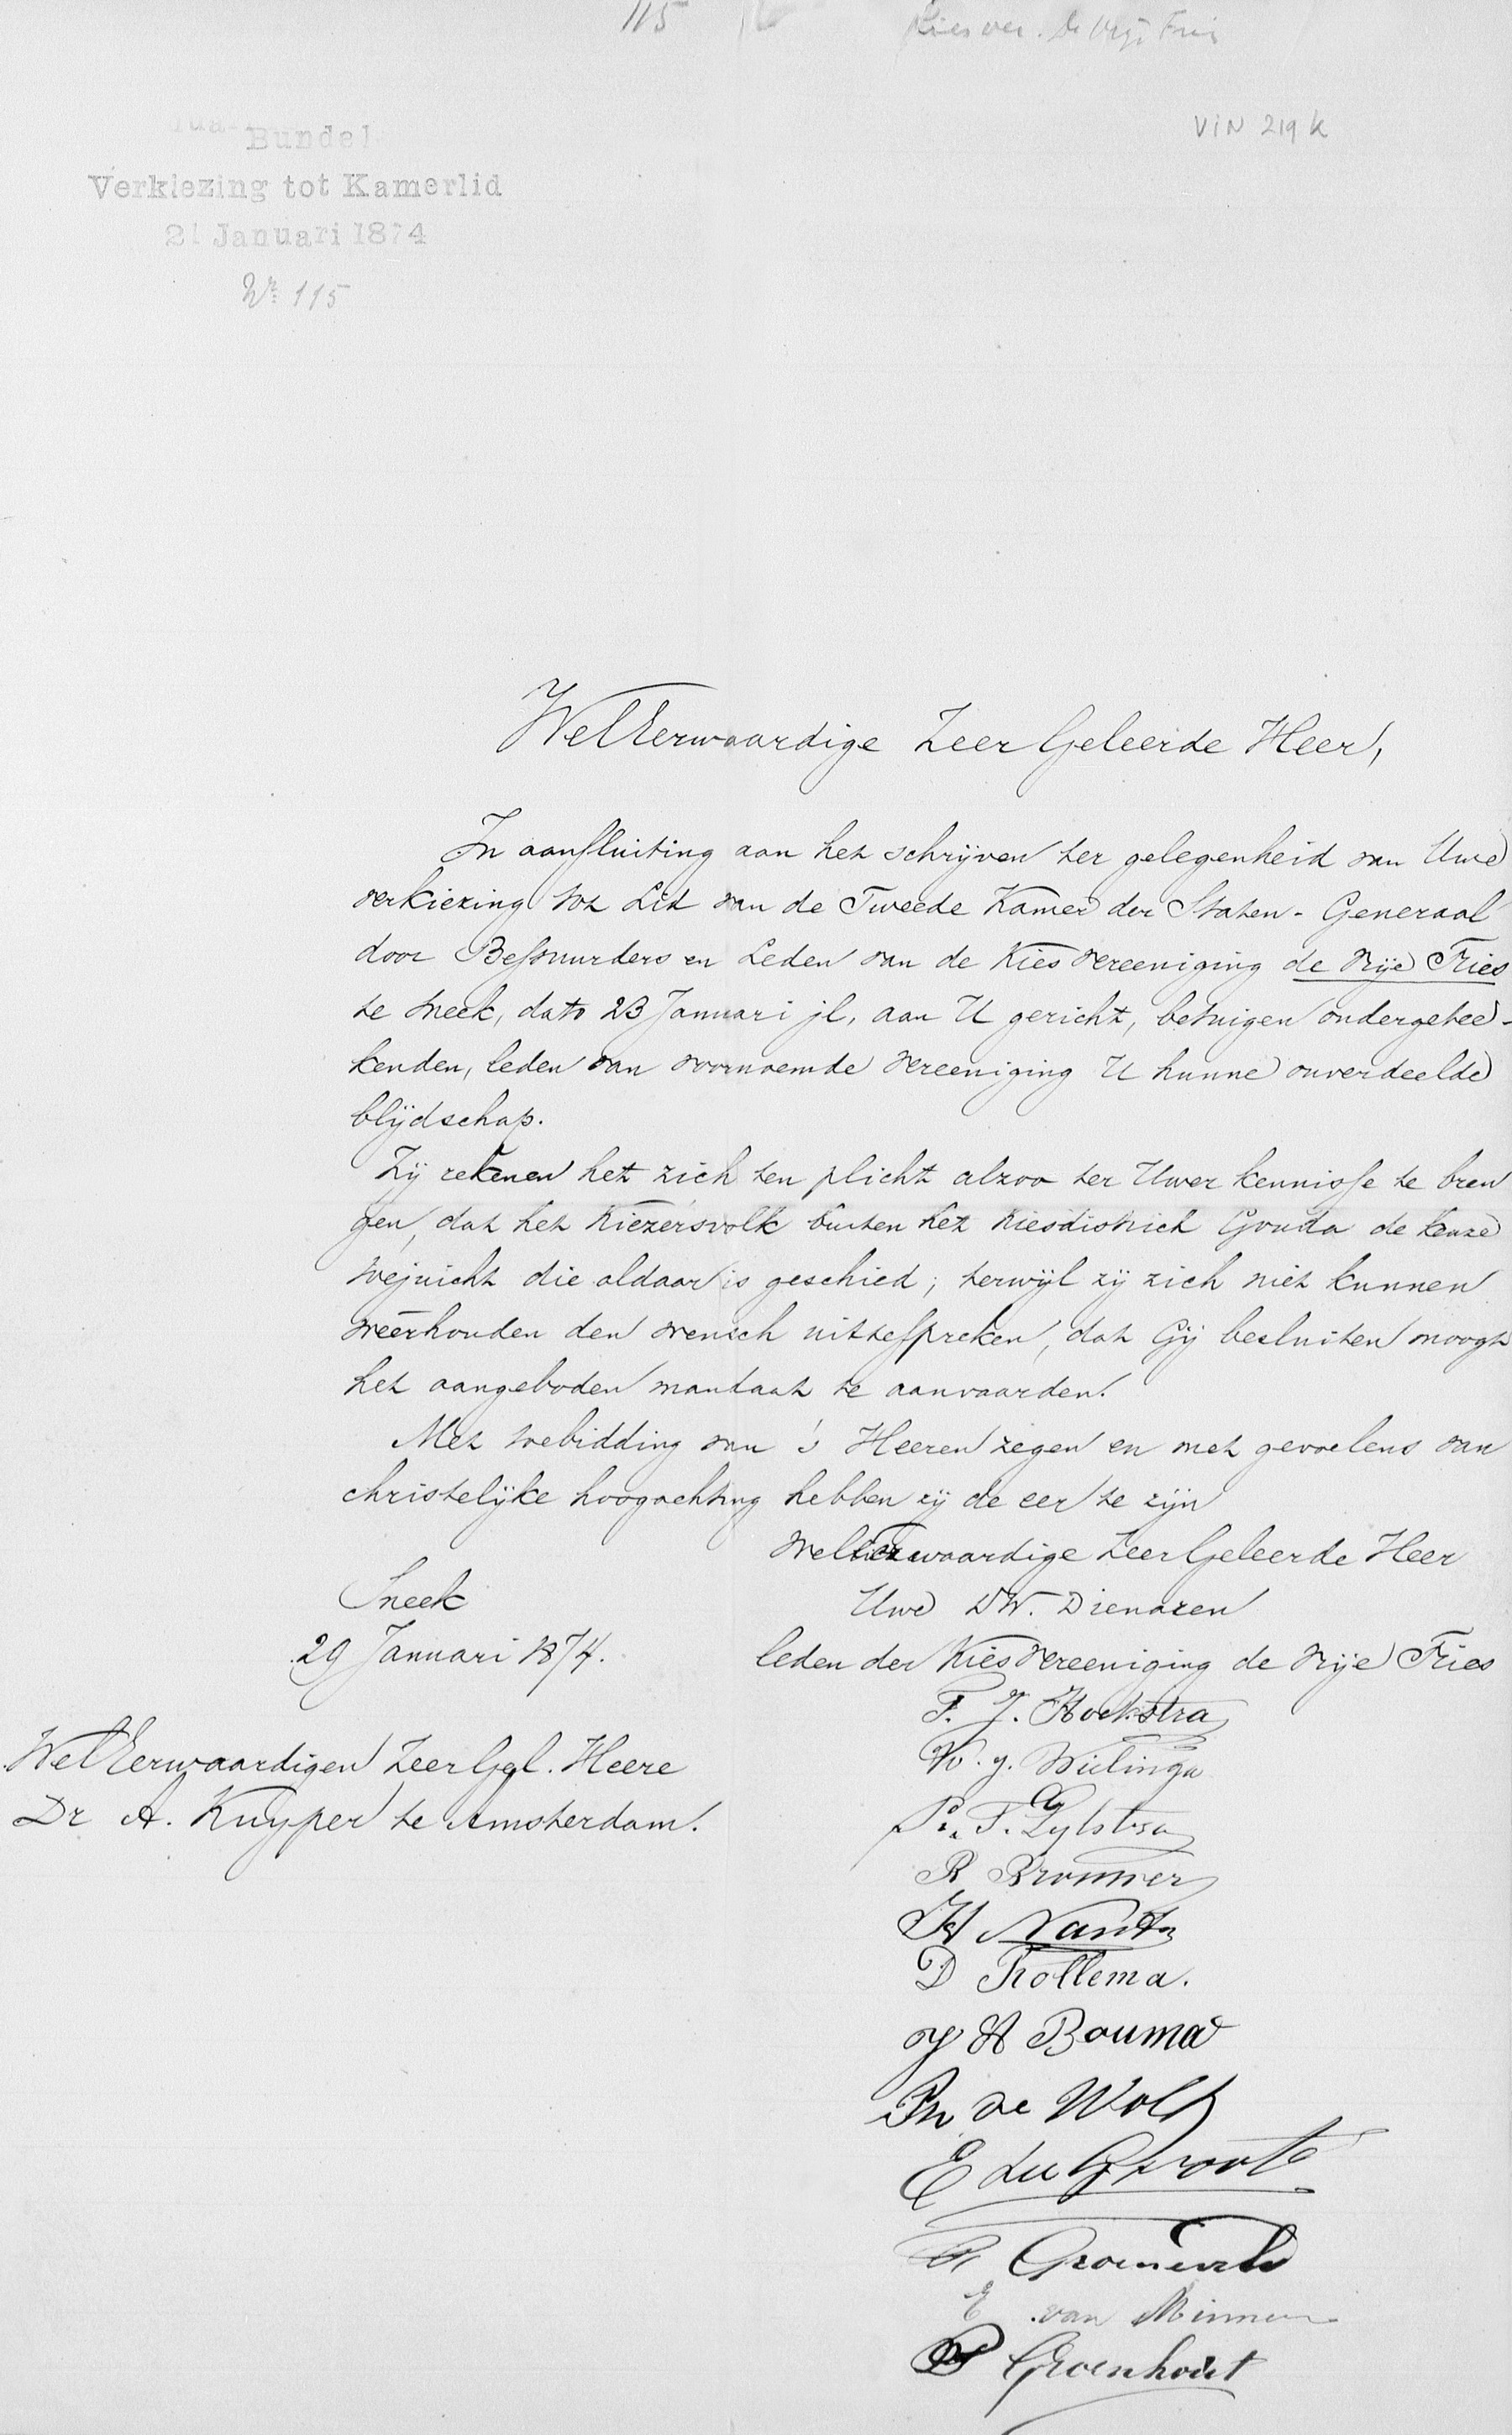 115
Kiesver. De Vrije Fries
VIN 219 k
Bundel
Verkiezing tot Kamerlid
21 Januari 1874
Nr. 115
WelEerwaardige Zeer Geleerde Heer,
In aansluiting aan het schrijven ter gelegenheid van Uwe
verkiezing tot Lid van de Tweede Kamer der Staten-Generaal
door Bestuurders en Leden van de Kiesvereeniging de Vrije Fries
te Sneek, dato 23 Januari jl, aan U gericht, betuigen ondergetee-
kenden, leden van voornoemde vereeniging U hunne onverdeelde
blijdschap.
Zij rekenen het zich ten plicht alzoo ter Uwer kennisse te bren
gen, dat het Kiezersvolk buiten het Kiesdistrict Gouda de keuze
toejuicht die aldaar is geschied; terwijl zij zich niet kunnen
weêrhouden den wensch uittespreken, dat Gij besluiten moogt
het aangeboden mandaat te aanvaarden.
Met toebidding van 's Heeren zegen en met gevoelens van
christelijke hoogachting hebben zij de eer te zijn
WelEerwaardige Zeer Geleerde Heer
Uwe DW. Dienaren
leden der Kiesvereeniging de Vrije Fries
Sneek
29 Januari 1874.
WelEerwaardigen Zeer Gel. Heere
Dr A. Kuyper te Amsterdam.
F. J. Hoekstra
W. J. Wielinga
P. T. Zylstra
R Brouwer
H Nauta
D Trollema.
H Bouma
de Wolf
E de Groote
Groeneveld
E van Minnen
P Groenhout